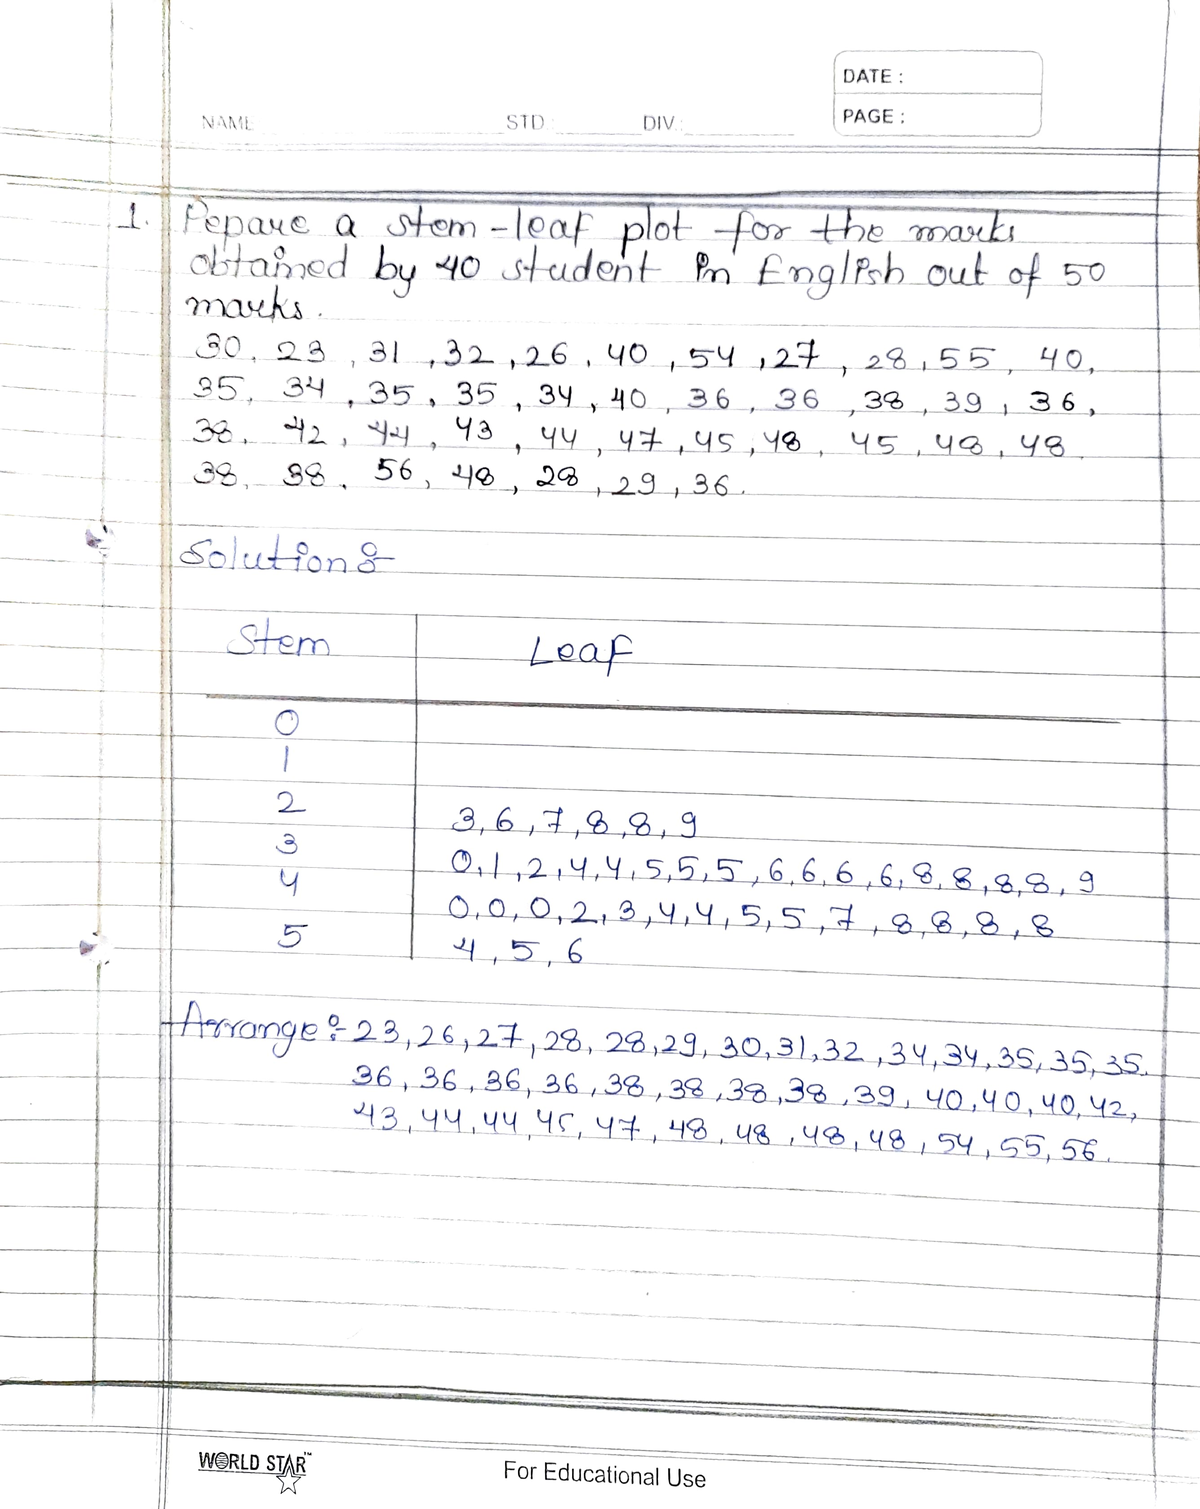 DATE :
NAME STD. DIV.: PAGE :
1. Pepare a stem-leaf plot for the marks
obtained by 40 student in English out of 50
marks.
30, 23, 31, 32, 26, 40, 54, 27, 28, 55, 40,
35, 34, 35, 35, 34, 40, 36, 36, 38, 39, 36,
38, 42, 44, 43, 44, 47, 45, 48, 45, 48, 48.
38, 38, 56, 48, 28, 29, 36.
Solution :-
Stem Leaf
0
1
2 3,6,7,8,8,9
3 0,1,2,4,4,5,5,5,6,6,6,6,8,8,8,8,9
4 0,0,0,2,3,4,4,5,5,7,8,8,8,8
5 4,5,6
Arrange :- 23,26,27,28,28,29,30,31,32,34,34,35,35,35.
36,36,36,36,38,38,38,38,39,40,40,40,42,
43,44,44,45,47,48,48,48,48,54,55,56.
WORLD STAR™ For Educational Use